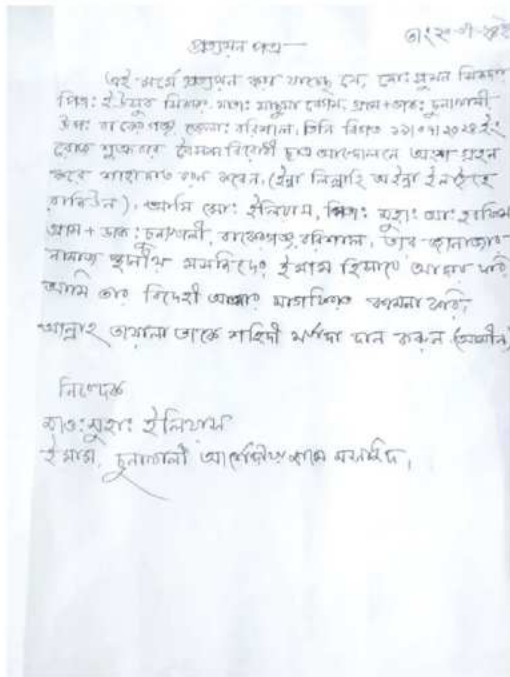 প্রত্যয়ন পত্র
এই মর্মে প্রত্যয়ন করা যাচ্ছে যে, মো: সুমন সিকদার
পিতা: ইউসুব সিকদার মাতা: মাছুমা বেগম, গ্রাম+ডাক: চুনাতলী
উপ: বাকেরগঞ্জ জেলা: বরিশাল, তিনি বিগত ১৯/০৭/২০২৪ ইং
রোজ শুক্রবার বৈষম্য বিরোধী ছাত্র আন্দোলনে অংশ গ্রহন
করে শাহাদাত বরণ করেন, (ইন্না লিল্লাহি অইন্না ইলাইহে
রাজিউন), আমি মো: ইলিয়াস, পিতা: মুহা: আ:
গ্রাম + ডাক: চুনাতলী, বাকেরগঞ্জ বরিশাল, তার জানাজার
নামাজ স্থানীয় মসজিদের ইমাম হিসাবে আদায় করি
আমি তার বিদেহী আত্মার মাগফিরাত কামনা করি,
আল্লাহ তায়ালা তাকে শহিদী মর্যাদা দান করুন (আমীন)
নিবেদক
মাও: মুহা: ইলিয়াস
ইমাম, চুনাতলী জামে মসজিদ,